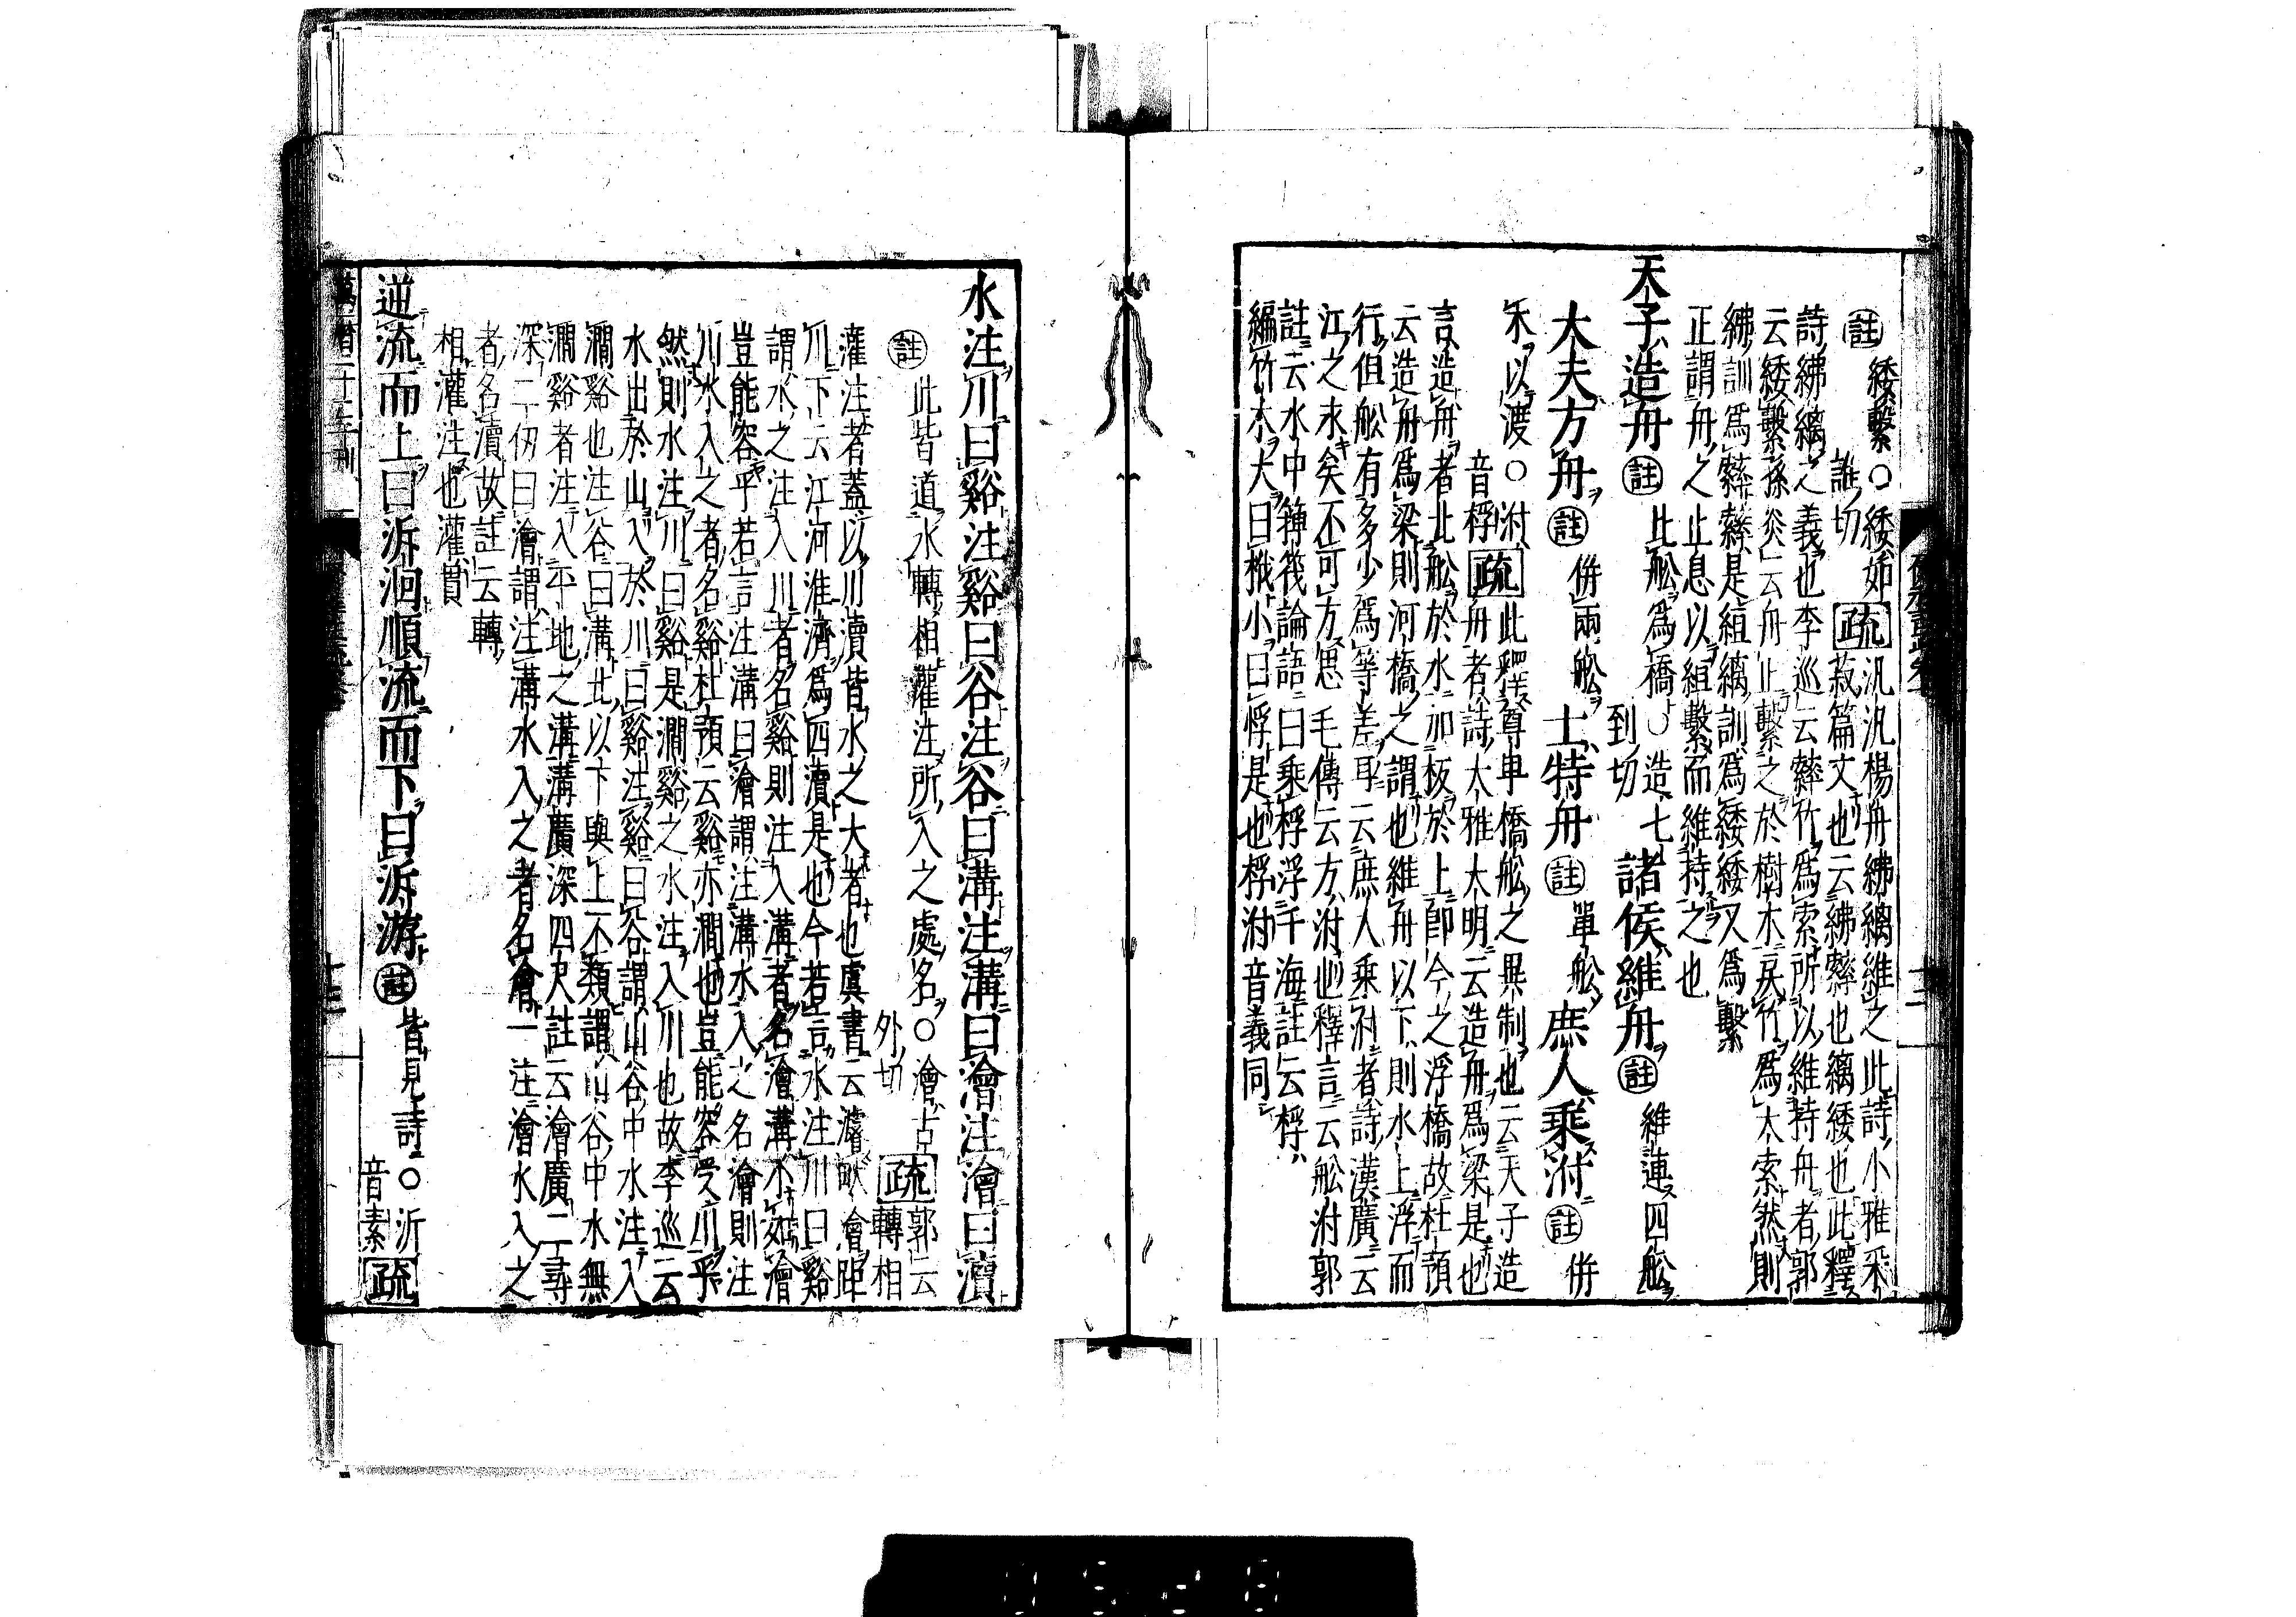 註 緌繫○緌如
誰切
疏 汎汎楊舟紼縭維之此詩小雅采
菽篇文也云紼䋫也縭緌也此釋
詩紼縭之義也李巡云䋫竹爲索所以維持舟者郭
云緌繫孫炎云舟止繫之於樹木戾竹爲大索然則
紼訓爲䋫䋫是絙縭訓爲緌緌又爲繫
正謂舟之止息以絙繫而維持之也
天子造舟 註 比舩爲橋○造七
到切
諸侯維舟 註 維連四舩
大夫方舟 註 併兩舩 士特舟 註 單舩 庶人乘泭 註 併
木以渡○泭
音桴
疏 此釋尊卑橋舩之異制也云天子造
舟者詩大雅大明云造舟爲梁是也
言造舟者比舩於水加板於上即今之浮橋故杜預
云造舟爲梁則河橋之謂也維舟以下則水上浮而
行但舩有多少爲等差耳云庶人乘泭者詩漢廣云
江之永矣不可方思毛傳云方泭也釋言云舩泭郭
註云水中䉬筏論語曰乘桴浮于海註云桴
編竹木大曰栰小曰桴是也桴泭音義同
水注川曰谿注谿曰谷注谷曰溝注溝曰澮注澮曰瀆
註 此皆道水轉相灌注所入之處名○澮古
外切
疏 郭云
轉相
灌注者蓋以川瀆皆水之大者也虞書云濬畎澮距
川下云江河淮濟爲四瀆是也今若言水注川曰谿
謂水之注入川者名谿則注入溝者名澮溝不如澮
豈能容乎若言注溝曰澮謂注溝水入之名澮則注
川水入之者名谿杜預云谿亦澗也豈能容受川乎
然則水注川曰谿是澗谿之水注入川也故李巡云
水出於山入於川曰谿注谿曰谷謂山谷中水注入
澗谿也注谷曰溝此以下與上不類謂山谷中水無
澗谿者注入平地之溝溝廣深四尺註云澮廣二尋
深二仞曰澮謂注溝水入之者名澮一注澮水入之
者名瀆故註云轉
相灌注也灌貫
逆流而上曰泝洄順流而下曰泝游 註 皆見詩○泝
音素
疏